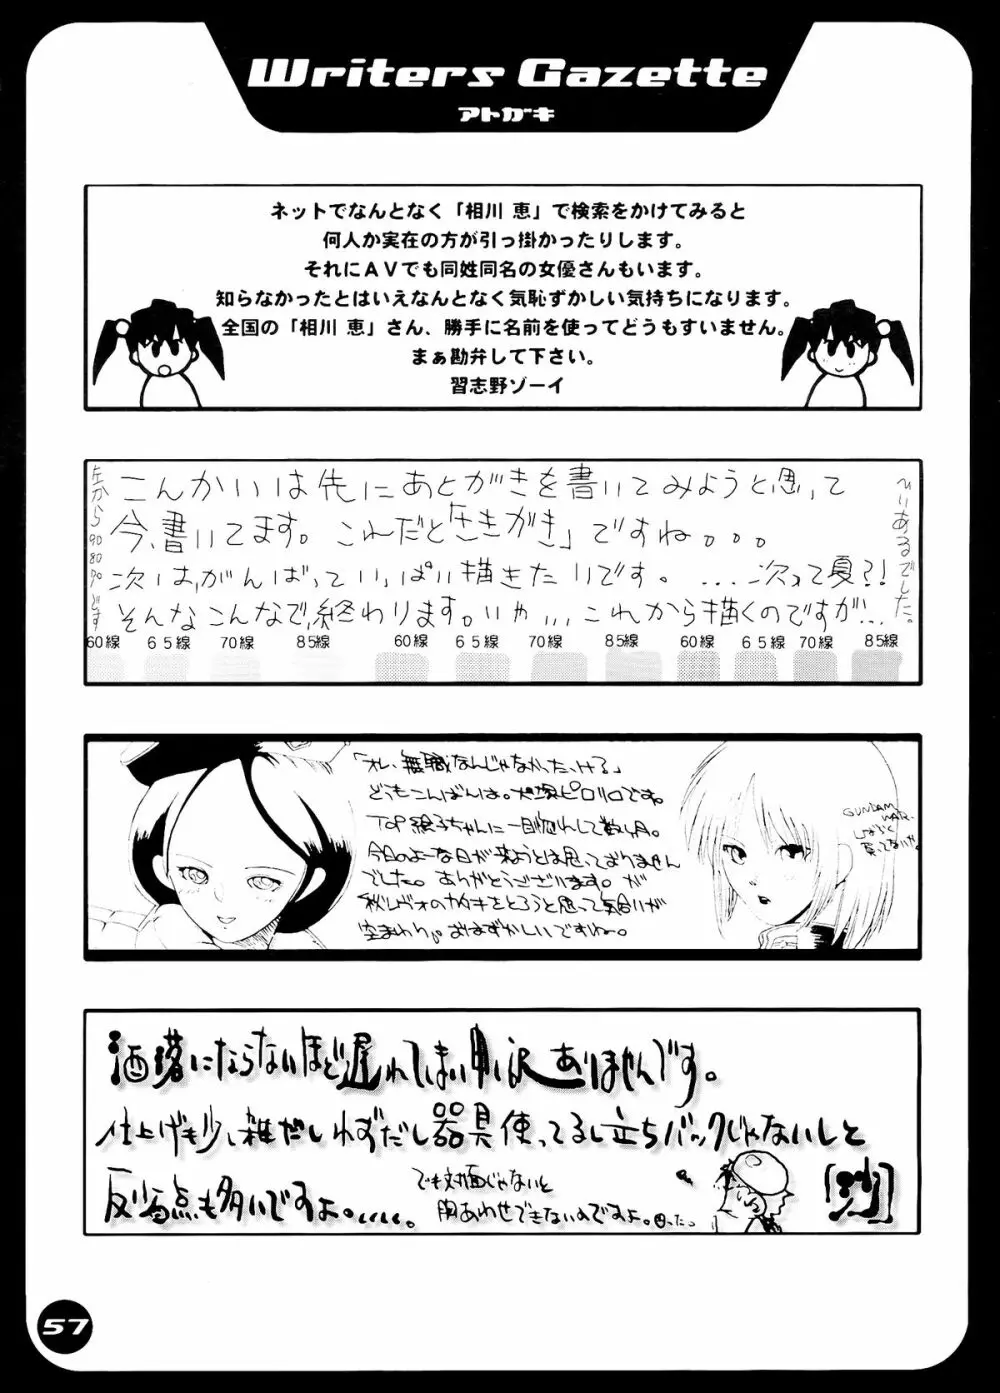 Writers Gazette
アトガキ
ネットでなんとなく「相川 恵」で検索をかけてみると
何人か実在の方が引っ掛かったりします。
それにＡＶでも同姓同名の女優さんもいます。
知らなかったとはいえなんとなく気恥ずかしい気持ちになります。
全国の「相川 恵」さん、勝手に名前を使ってどうもすいません。
まぁ勘弁して下さい。
習志野ゾーイ
左から908070です
こんかいは先にあとがきを書いてみようと思って
今、書いてます。これだと「さきがき」ですね。。。
次は、がんばっていっぱい描きたいです。...次って夏?!
そんなこんなで、終わります。いや...これから描くのですが...
でりあるでした。
60線 65線 70線 85線 60線 65線 70線 85線 60線 65線 70線 85線
「オレ、無職なんじゃなかったっけ？」
どうもこんばんは。犬塚ピロリロです。
TOP絵子ちゃんに一目惚れして数ヶ月。
今日のような日が来ようとは思っておりません
でした。ありがとうございます。が
秋レヴォのカタキをとろうと思って気合いが
空まわり。おはずかしいですね。
GUNDAM
WAR.
しばらく
買ってないや。
洒落にならないほど遅れてしまい申し訳ありませんです。
仕上げも少し雑だしはずだし器具使ってるし立ちバックじゃないしと
反省点も多いですよ。....。
でも対面じゃないと
胸あわせできないのですよ。困った。